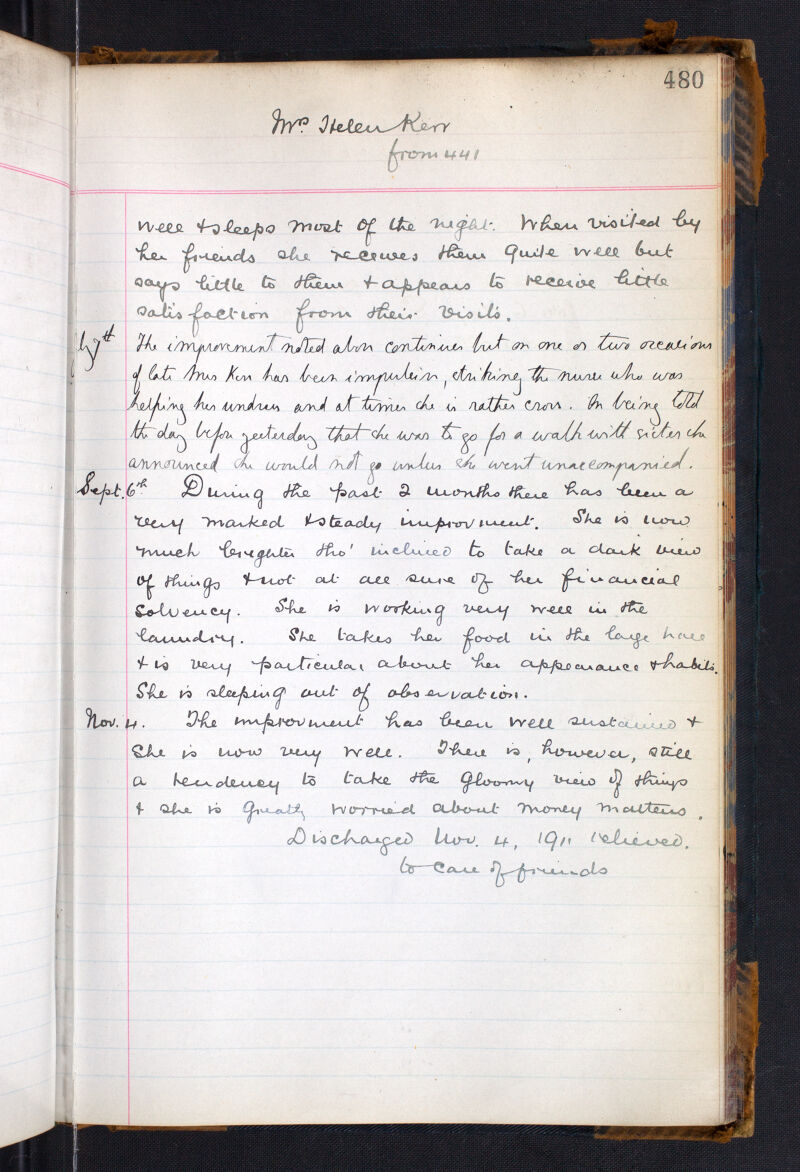 480
Mrs Helen Kerr
from 441
well & sleeps most of the night. When visited by
her friends she receives them quite well but
says little to them & appears to receive little
satisfaction from their visits.
7th The improvement noted above continues but on one or two occasions
of late Mrs Kerr has been impulsive, striking the nurse who was
helping her undress and at times she is rather cross. On being told
the day before yesterday that she was to go for a walk with sister she
announced she would not go unless she went unaccompanied.
Sept. 6th During the past 2 months there has been a
very marked & steady improvment. She is now
much brighter tho' inclined to take a dark view
of things & not at all sure of her financial
solvency. She is working very well in the
laundry. She takes her food in the large hall
& is very particular about her appearance & habits.
She is sleeping out of observation.
Nov. 4. The improvment has been well sustained &
she is now very well. There is, however, still
a tendency to take the gloomy view of things
& she is greatly worried about money matters.
Discharged Nov. 4, 1911 relieved.
to care of friends